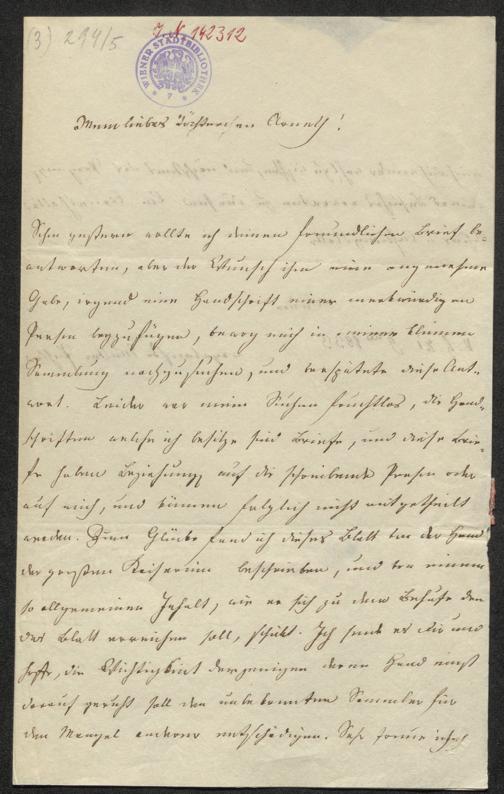 (3) 294/5
J. N. 142312
WIENER STADTBIBLIOTHEK
* 7 *
Mein liebes Töchterchen Arneth!
Schon gestern wollte ich deinen freundlichen Brief be-
antworten, aber der Wunsch ihm eine angenehme
Gabe, irgend eine Handschrift einer merkwürdigen
Person beyzufügen, bewog mich in meiner kleinen
Sammlung nachzusuchen, und verspätete diese Ant-
wort. Leider war mein Suchen fruchtlos, die Hand-
schriften welche ich besitze sind Briefe, und diese Brie-
fe haben Beziehung auf die schreibende Person oder
auf mich, und können folglich nicht mitgetheilt
werden. Zum Glücke fand ich dieses Blatt von der Hand
der großen Kaiserinn beschrieben, und von einem
so allgemeinen Inhalt, wie er sich zu dem Behufe den
das Blatt erreichen soll, schickt. Ich sende es dir und
hoffe, die Wichtigkeit derjenigen deren Hand einst
darauf geruht soll den unbekannten Sammler für
den Mangel anderer entschädigen. Sehr freue ich